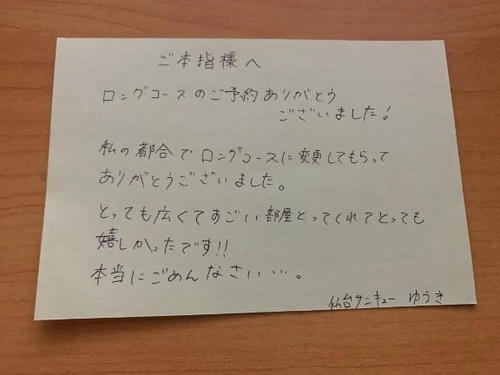 ご本指様へ
ロングコースのご予約ありがとう
ございました!
私の都合でロングコースに変更してもらって
ありがとうございました。
とっても広くてすごい部屋とってくれてとっても
嬉しかったです!!
本当にごめんなさい…。
仙台サンキュー ゆうき